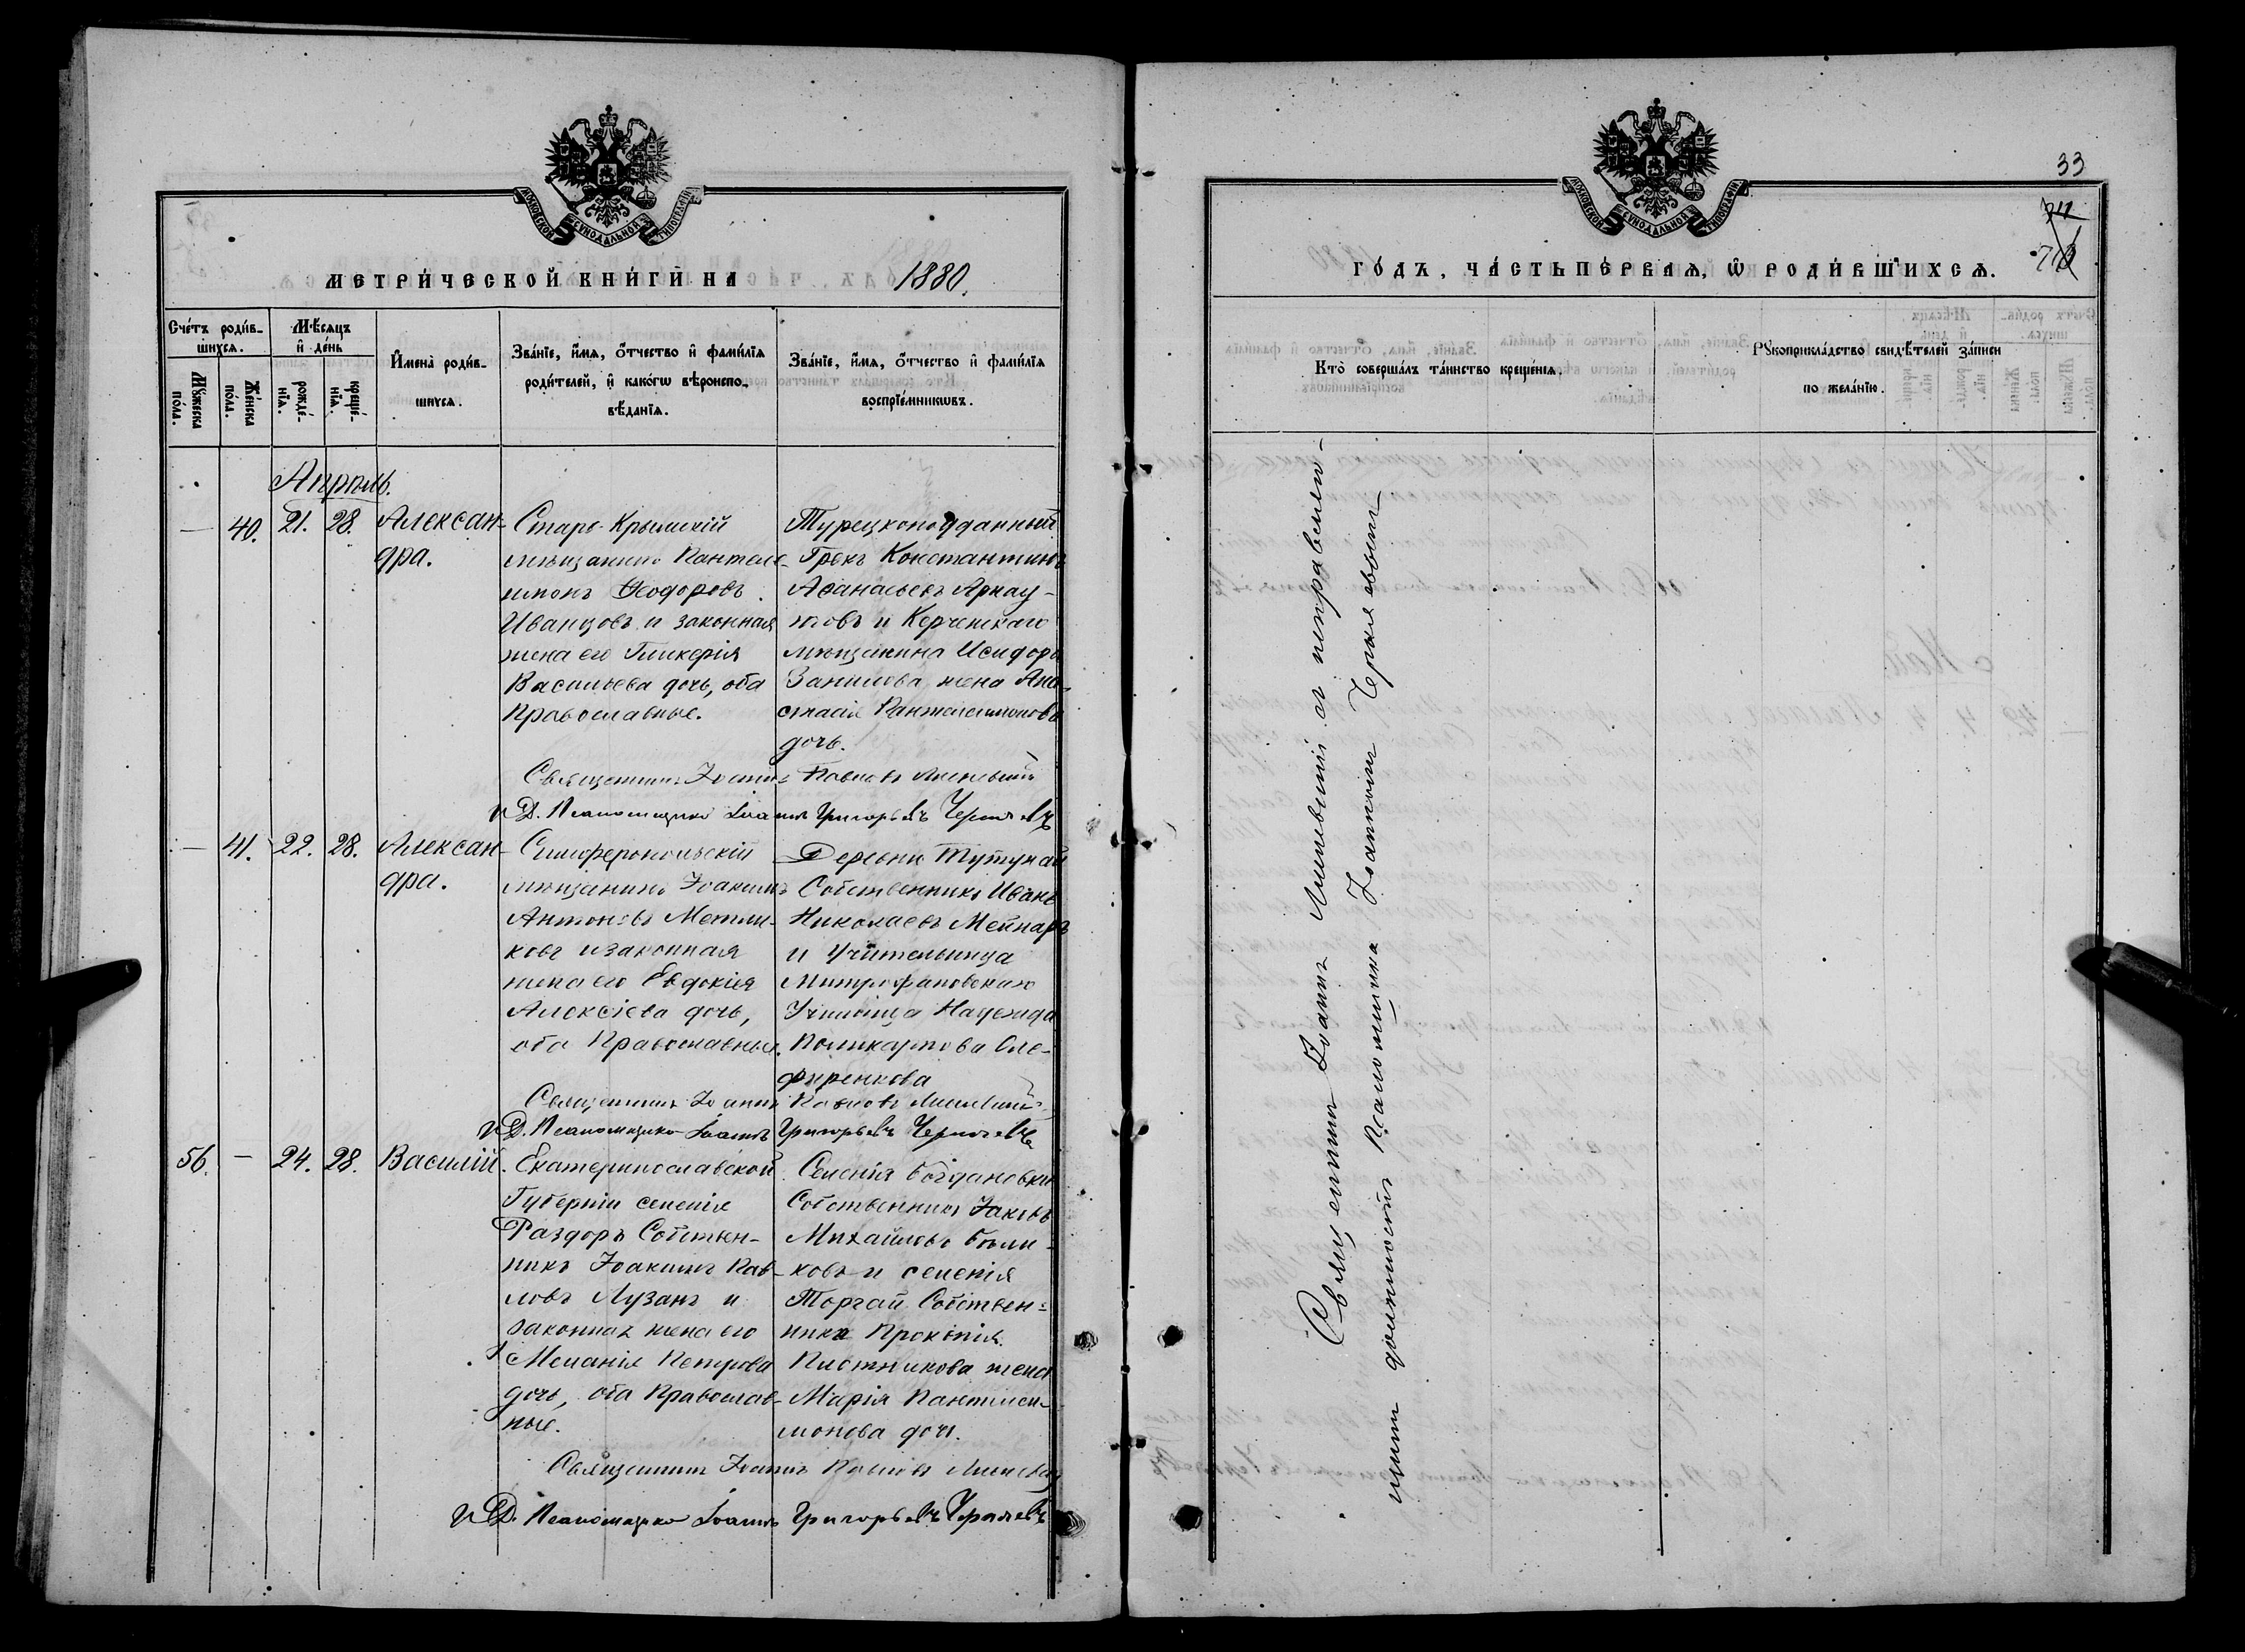 МОСКОВСКОЙ СѴНОДАЛЬНОЙ ТИПОГРАФІИ
МЕТРИ́ЧЕСКОЙ КНИ́ГИ НА 1880.
Сче́тъ роди́в-
шихся.
Мѣ́сяцъ
и҆ де́нь
Мꙋ́жеска
по́ла.
Же́нска
по́ла.
рожде́-
нїя.
креще́-
нїя.
И҆мена̀ роди́в-
шихся.
Зва́нїе, и҆́мя, ѻ҆́тчество и҆ фами́лїя
роди́телей, и҆ како́гѡ вѣроиспо-
вѣ́данїя.
Зва́нїе, и҆́мя, ѻ҆́тчество и҆ фами́лїя
воспрїе́мникѡвъ.
Апрѣль.
— 40. 21. 28. Алексан-
дра.
Старо-Крымскій
мѣщанинъ Пантеле-
имонъ Ѳеодоровъ
Иванцовъ и законная
жена его Гликерія
Васильева дочь, оба
Православные.
Турецкоподданный
Грекъ Константинъ
Аѳанасьевъ Арнау-
товъ и Керченскаго
мѣщанина Исидора
Данилова жена Ана-
стасія Пантелеимонова
дочь.
Священникъ Іоаннъ Павловъ
И Д. Псаломщика Іоаннъ Григорьевъ Черняевъ
— 41. 22. 28. Алексан-
дра.
Симферопольскій
мѣщанинъ Іоакимъ
Антоновъ Метли-
ковъ и законная
жена его Евдокія
Алексіева дочь,
оба Православные.
Деревни Тутунай
Собственникъ Иванъ
Николаевъ Мейнаръ
и Учительница
Митрофановскаго
Училища Надежда
Поликарпова Оле-
фиренкова
Священникъ Іоаннъ Павловъ
И Д. Псаломщика Іоаннъ Григорьевъ Черняевъ
56. — 24. 28. Василій.
Екатеринославской
Губерніи селенія
Раздоръ Собствен-
никъ Іоакимъ Пав-
ловъ Лузанъ и
законная жена его
Меланія Петрова
дочь, оба Православ-
ные.
Селенія Богдановки
Собственникъ Іаковъ
Михайловъ Бѣли-
ковъ и селенія
Торгай Собствен-
ника Прокопія
Плотникова жена
Марія Пантелеи-
монова дочь.
Священникъ Іоаннъ Павловъ
И Д. Псаломщика Іоаннъ Григорьевъ Черняевъ
33
МОСКОВСКОЙ СѴНОДАЛЬНОЙ ТИПОГРАФІИ
ГО́ДЪ, ЧА́СТЬ ПЕ́РВАЯ, Ѡ҆ РОДИ́ВШИХСЯ.
Кто̀ соверша́лъ та́инство креще́нїя.
Рꙋкоприкла́дство свидѣ́телей за́писи
по жела́нїю.
Священникъ Іоаннъ съ исправляю-
щимъ должность Псаломщика Іоанномъ Черняевымъ